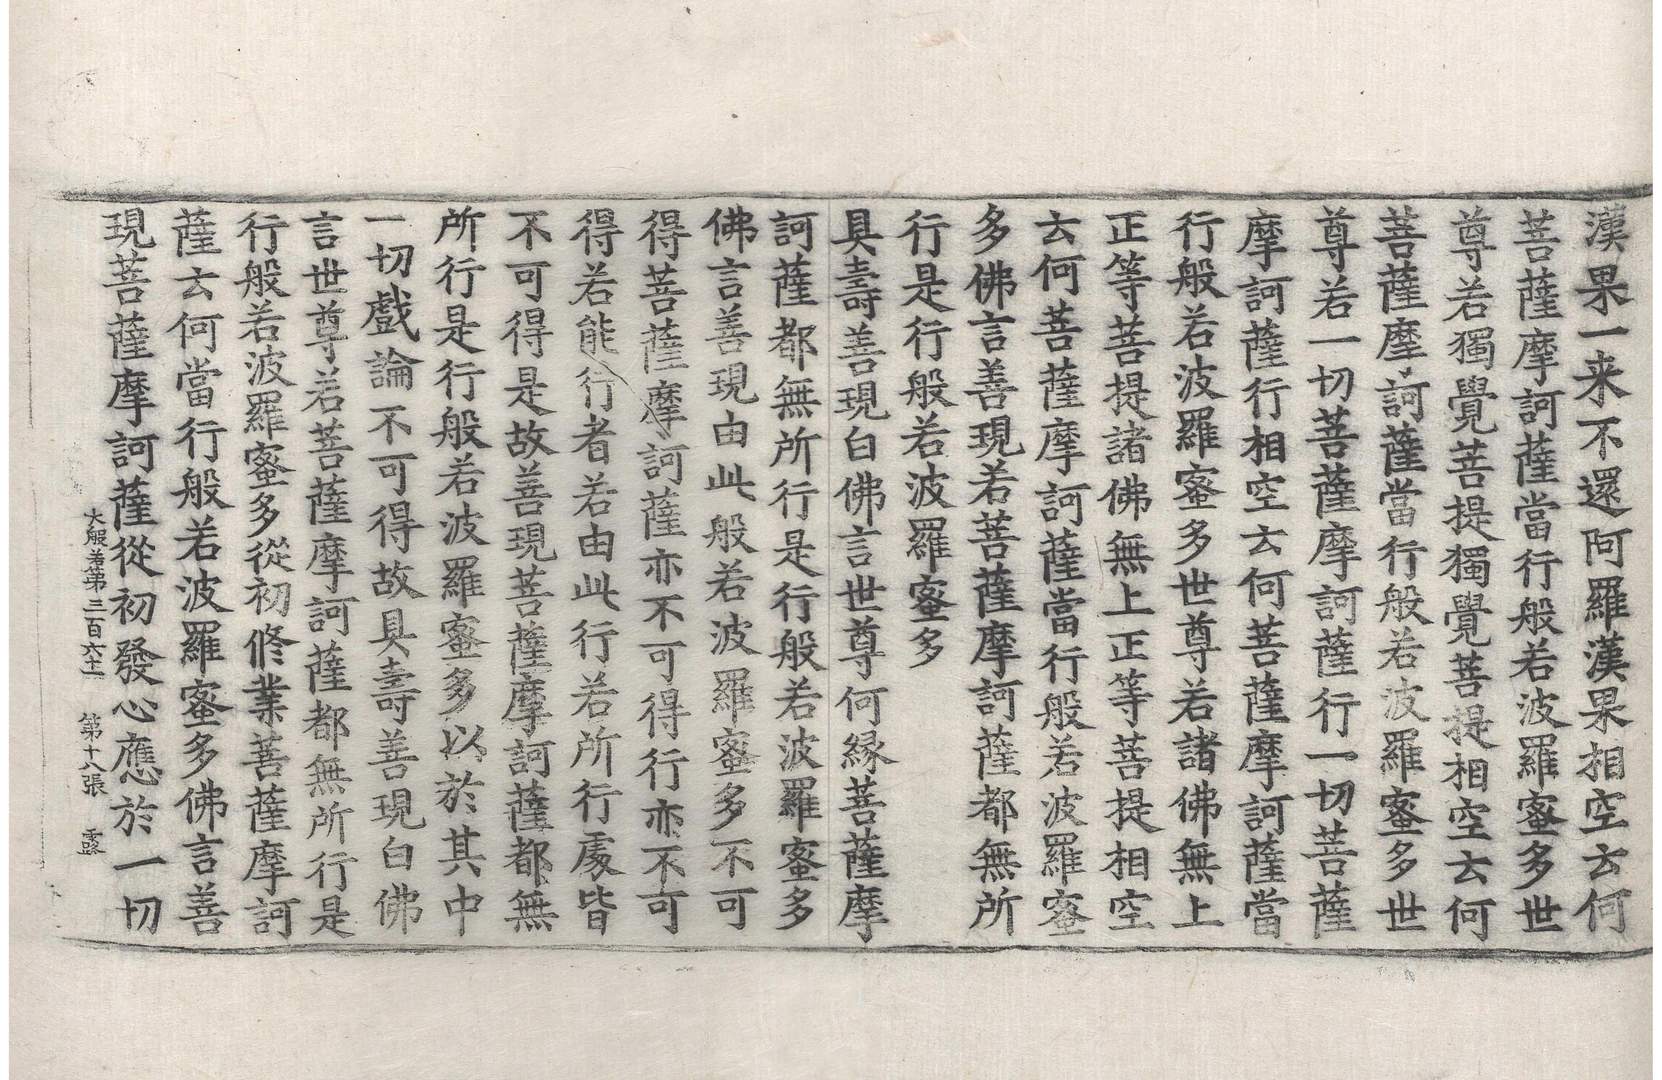 漢果一来不還阿羅漢果相空云何
菩薩摩訶薩當行般若波羅蜜多世
尊若獨覺菩提獨覺菩提相空云何
菩薩摩訶薩當行般若波羅蜜多世
尊若一切菩薩摩訶薩行一切菩薩
摩訶薩行相空云何菩薩摩訶薩當
行般若波羅蜜多世尊若諸佛無上
正等菩提諸佛無上正等菩提相空
云何菩薩摩訶薩當行般若波羅蜜
多佛言善現若菩薩摩訶薩都無所
行是行般若波羅蜜多
具壽善現白佛言世尊何緣菩薩摩
訶薩都無所行是行般若波羅蜜多
佛言善現由此般若波羅蜜多不可
得菩薩摩訶薩亦不可得行亦不可
得若能行者若由此行若所行處皆
不可得是故善現菩薩摩訶薩都無
所行是行般若波羅蜜多以於其中
一切戲論不可得故具壽善現白佛
言世尊若菩薩摩訶薩都無所行是
行般若波羅蜜多從初修業菩薩摩訶
薩云何當行般若波羅蜜多佛言善
現菩薩摩訶薩從初發心應於一切
大般若第三百六十一 第十八張 露